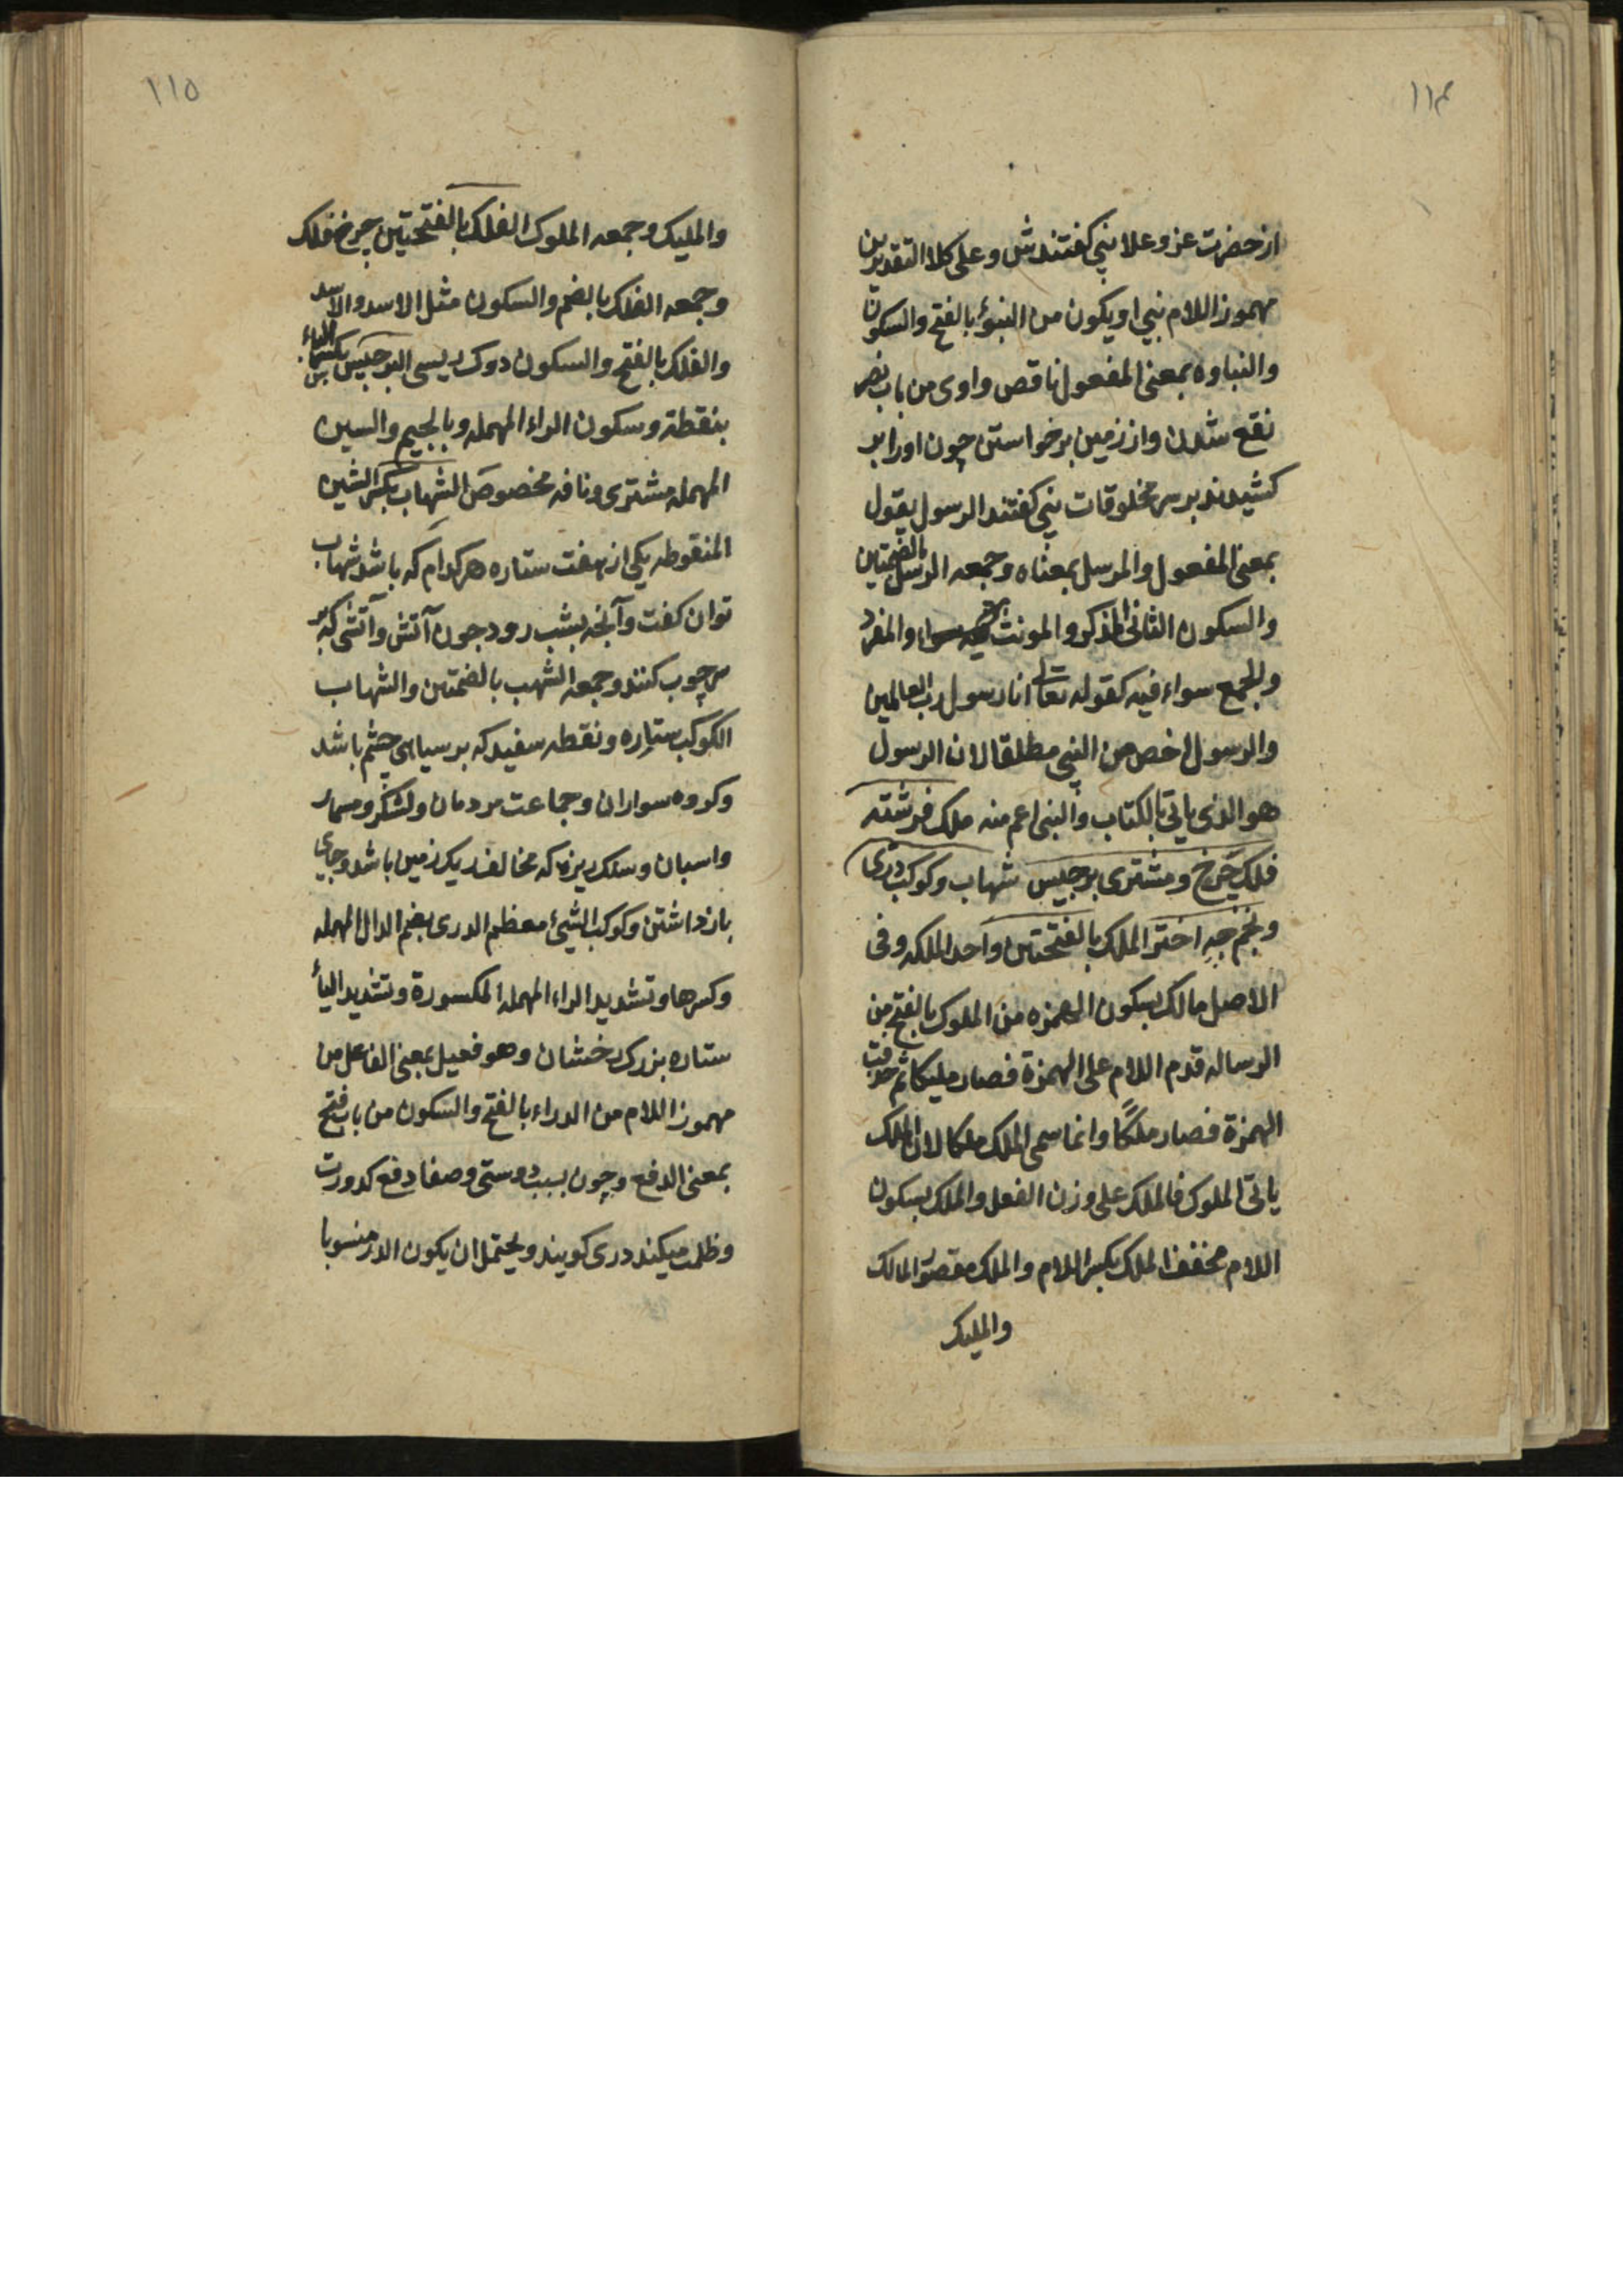 ١١٤
از حضرت عز و علا نبي گفتندش و على كلا التقديرين
مهموز اللام نبي او يكون من النبؤ بالفتح والسكون
والنباوه بمعنى المفعول ناقص واوى من باب نصر
نقع شدن و از زمين برخواستن چون اورا بر
كشيدند بر سر مخلوقات نبي گفتند الرسول يقول
بمعنى المفعول والمرسل بمعناه وجمعه الرسل بالضمتين
والسكون الثانى المذكر والمونث فيه سواء والمفرد
والجمع سواء فيه كقوله تعالى انا رسول رب العالمين
والرسول اخص من النبي مطلقا لان الرسول
هو الذى ياتى بالكتاب والنبى اعم منه ملك فرشته
فلك چرخ و مشترى برجيس شهاب و كوكب درى
و نجم چه اختر الملك بالفتحتين واحد الملكه و فى
الاصل مالك بسكون الهمزه من الملوك بالفتح من
الرساله قدم اللام على الهمزة فصار مليكا ثم حذفت
الهمزة فصار ملكًا وانما سمى الملك ملكا لان الملك
ياتى الملوك فالملك على وزن الفعل والملك بسكون
اللام مخفف الملك بكسر اللام والملك مقصور المالك
والمليك
١١٥
والمليك وجمعه الملوك الفلك بالفتحتين چرخ فلك
وجمعه الفلك بالضم والسكون مثل الاسد والاسد
والفلك بالفتح والسكون دوك ريسى البرجيس بكسر الباء
بنقطة وسكون الراء المهمله وبالجيم والسين
المهمله مشترى و نافه مخصوص الشهاب بكسر الشين
المنقوطه يكى از هفت ستاره هر كدام كه باشد شهاب
توان گفت و آنچه بشب رود چون آتش و آتشى كه بر
سر چوب كنند وجمعه الشهب بالضمتين والشهاب
الكوكب ستاره و نقطه سفيد كه بر سياهى چشم باشد
و كروه سواران و جماعت مردمان و لشكر و مسمار
و اسبان و سنك ريزه كه مخالف ريك زمين باشد و جاى
بازداشتن و كوكب الشىٔ معظم الدرى بضم الدال المهمله
وكسرها وتشديد الراء المهمله المكسورة وتشديد اليأ
ستاره بزرك رخشان و هو فعيل بمعنى الفاعل من
مهموز اللام من الدراء بالفتح والسكون من باب فتح
بمعنى الدفع و چون بسبب دوستى و صفا دفع كدورت
و ظلمت ميكند درى كويند و يحتمل ان يكون الدر منسوبا